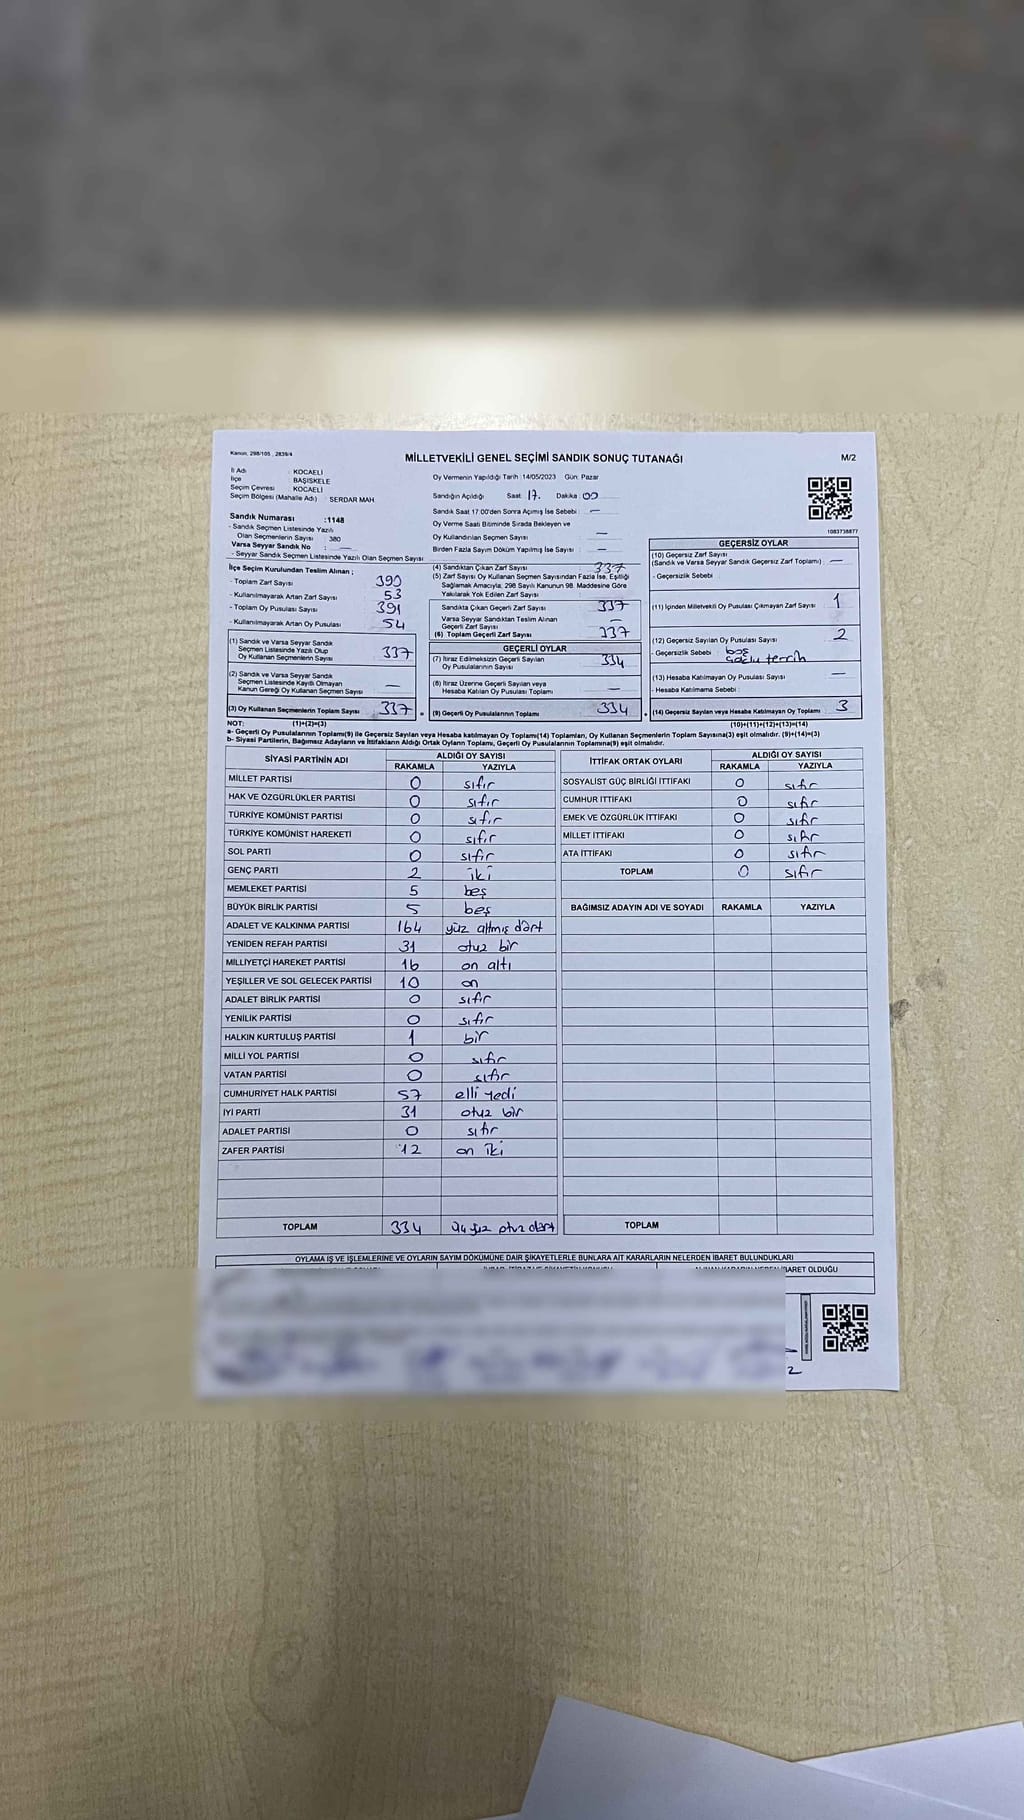 Kanun, 298/105 , 2839/4
MİLLETVEKİLİ GENEL SEÇİMİ SANDIK SONUÇ TUTANAĞI
M/2
İl Adı : KOCAELİ
İlçe : BAŞİSKELE
Seçim Çevresi : KOCAELİ
Seçim Bölgesi (Mahalle Adı) : SERDAR MAH.
Sandık Numarası :1148
- Sandık Seçmen Listesinde Yazılı
Olan Seçmenlerin Sayısı : 380
Varsa Seyyar Sandık No : —
- Seyyar Sandık Seçmen Listesinde Yazılı Olan Seçmen Sayısı
Oy Vermenin Yapıldığı Tarih :14/05/2023 Gün: Pazar
Sandığın Açıldığı Saat 17. Dakika 00
Sandık Saat 17:00'den Sonra Açılmış İse Sebebi : —
Oy Verme Saati Bitiminde Sırada Bekleyen ve
Oy Kullandırılan Seçmen Sayısı —
Birden Fazla Sayım Döküm Yapılmış İse Sayısı : —
1083738877
İlçe Seçim Kurulundan Teslim Alınan ;
- Toplam Zarf Sayısı 390
- Kullanılmayarak Artan Zarf Sayısı 53
- Toplam Oy Pusulası Sayısı 391
- Kullanılmayarak Artan Oy Pusulası 54
(1) Sandık ve Varsa Seyyar Sandık
Seçmen Listesinde Yazılı Olup
Oy Kullanan Seçmenlerin Sayısı 337
(2) Sandık ve Varsa Seyyar Sandık
Seçmen Listesinde Kayıtlı Olmayan
Kanun Gereği Oy Kullanan Seçmen Sayısı —
(3) Oy Kullanan Seçmenlerin Toplam Sayısı 337
(4) Sandıktan Çıkan Zarf Sayısı 337
(5) Zarf Sayısı Oy Kullanan Seçmen Sayısından Fazla İse, Eşitliği
Sağlamak Amacıyla; 298 Sayılı Kanunun 98. Maddesine Göre
Yakılarak Yok Edilen Zarf Sayısı :
Sandıkta Çıkan Geçerli Zarf Sayısı 337
Varsa Seyyar Sandıktan Teslim Alınan
Geçerli Zarf Sayısı —
(6) Toplam Geçerli Zarf Sayısı 337
GEÇERLİ OYLAR
(7) İtiraz Edilmeksizin Geçerli Sayılan
Oy Pusulalarının Sayısı 334
(8) İtiraz Üzerine Geçerli Sayılan veya
Hesaba Katılan Oy Pusulası Toplamı —
= (9) Geçerli Oy Pusulalarının Toplamı 334
GEÇERSİZ OYLAR
(10) Geçersiz Zarf Sayısı
(Sandık ve Varsa Seyyar Sandık Geçersiz Zarf Toplamı) —
- Geçersizlik Sebebi :
(11) İçinden Milletvekili Oy Pusulası Çıkmayan Zarf Sayısı 1
(12) Geçersiz Sayılan Oy Pusulası Sayısı 2
- Geçersizlik Sebebi : boş
terrih
(13) Hesaba Katılmayan Oy Pusulası Sayısı —
- Hesaba Katılmama Sebebi :
+ (14) Geçersiz Sayılan veya Hesaba Katılmayan Oy Toplamı 3
NOT: (1)+(2)=(3) (10)+(11)+(12)+(13)=(14)
a- Geçerli Oy Pusulalarının Toplamı(9) ile Geçersiz Sayılan veya Hesaba katılmayan Oy Toplamı(14) Toplamları, Oy Kullanan Seçmenlerin Toplam Sayısına(3) eşit olmalıdır. (9)+(14)=(3)
b- Siyasi Partilerin, Bağımsız Adayların ve İttifakların Aldığı Ortak Oyların Toplamı, Geçerli Oy Pusulalarının Toplamına(9) eşit olmalıdır.
SİYASİ PARTİNİN ADI ALDIĞI OY SAYISI
RAKAMLA YAZIYLA
MİLLET PARTİSİ 0 sıfır
HAK VE ÖZGÜRLÜKLER PARTİSİ 0 sıfır
TÜRKİYE KOMÜNİST PARTİSİ 0 sıfır
TÜRKİYE KOMÜNİST HAREKETİ 0 sıfır
SOL PARTİ 0 sıfır
GENÇ PARTİ 2 iki
MEMLEKET PARTİSİ 5 beş
BÜYÜK BİRLİK PARTİSİ 5 beş
ADALET VE KALKINMA PARTİSİ 164 yüz altmış dört
YENİDEN REFAH PARTİSİ 31 otuz bir
MİLLİYETÇİ HAREKET PARTİSİ 16 on altı
YEŞİLLER VE SOL GELECEK PARTİSİ 10 on
ADALET BİRLİK PARTİSİ 0 sıfır
YENİLİK PARTİSİ 0 sıfır
HALKIN KURTULUŞ PARTİSİ 1 bir
MİLLİ YOL PARTİSİ 0 sıfır
VATAN PARTİSİ 0 sıfır
CUMHURİYET HALK PARTİSİ 57 elli yedi
İYİ PARTİ 31 otuz bir
ADALET PARTİSİ 0 sıfır
ZAFER PARTİSİ 12 on iki
TOPLAM 334 üç yüz otuz dört
İTTİFAK ORTAK OYLARI ALDIĞI OY SAYISI
RAKAMLA YAZIYLA
SOSYALİST GÜÇ BİRLİĞİ İTTİFAKI 0 sıfır
CUMHUR İTTİFAKI 0 sıfır
EMEK VE ÖZGÜRLÜK İTTİFAKI 0 sıfır
MİLLET İTTİFAKI 0 sıfır
ATA İTTİFAKI 0 sıfır
TOPLAM 0 sıfır
BAĞIMSIZ ADAYIN ADI VE SOYADI RAKAMLA YAZIYLA
TOPLAM
OYLAMA İŞ VE İŞLEMLERİNE VE OYLARIN SAYIM DÖKÜMÜNE DAİR ŞİKAYETLERLE BUNLARA AİT KARARLARIN NELERDEN İBARET BULUNDUKLARI
İBARET OLDUĞU
2